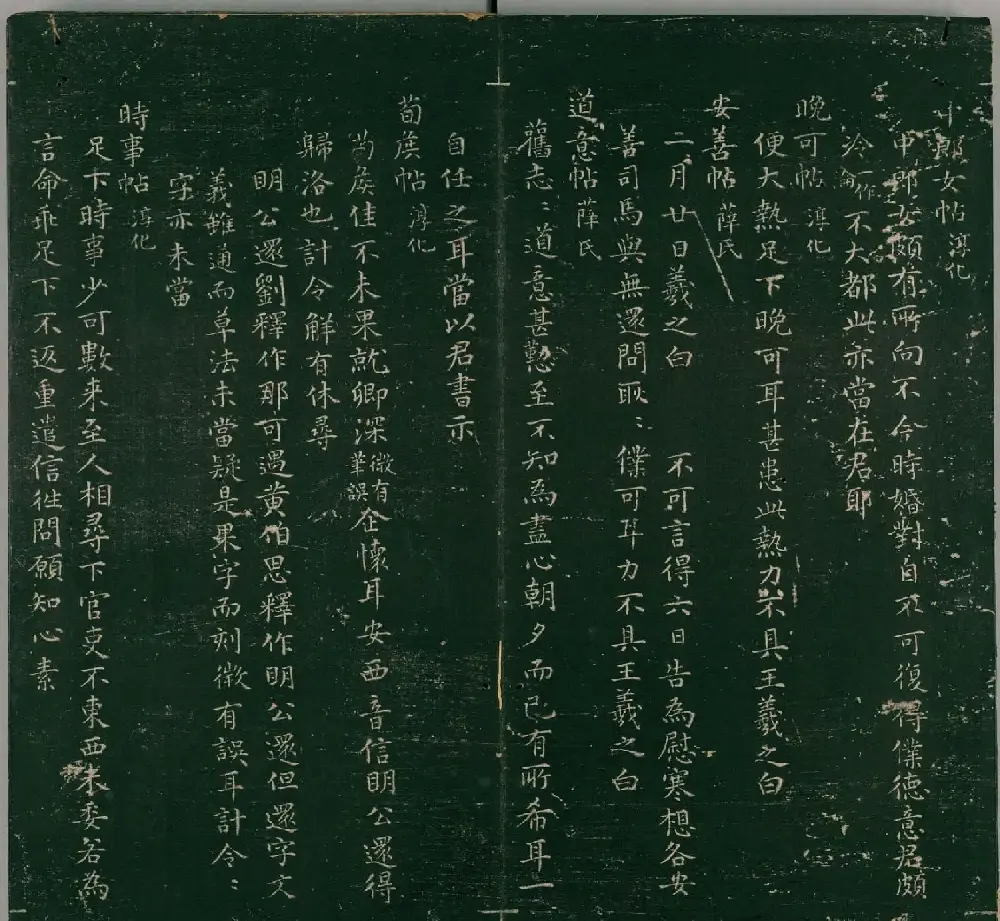 中郎女帖 淳化
中郎女頗有所向不今時婚對自不可復得僕德意君頗
冷一作論不大都此亦當在君耶
晚可帖 淳化
便大熱足下晚可耳甚患此熱力不具王羲之白
安善帖 薛氏
二月廿日羲之白 不可言得六日告為慰寒想各安
善司馬與無還問耿〻僕可耳力不具王羲之白
道意帖 薛氏
舊志〻道意甚懃至不知為盡心朝夕而已有所希耳一
自任之耳當以君書示
荀侯帖 淳化
荀侯佳不未果就卿深微有華誤企懷耳安西音信明公還得
歸洛也計令解有休尋
明公還劉釋作那可過黃伯思釋作明公還但還字文
義雖通而草法未當疑是果字而刻微有誤耳計令〻
字亦未當
時事帖 淳化
足下時事少可數来至人相尋下官吏不東西未委若為
言命乖足下不返重遣信往問願知心素